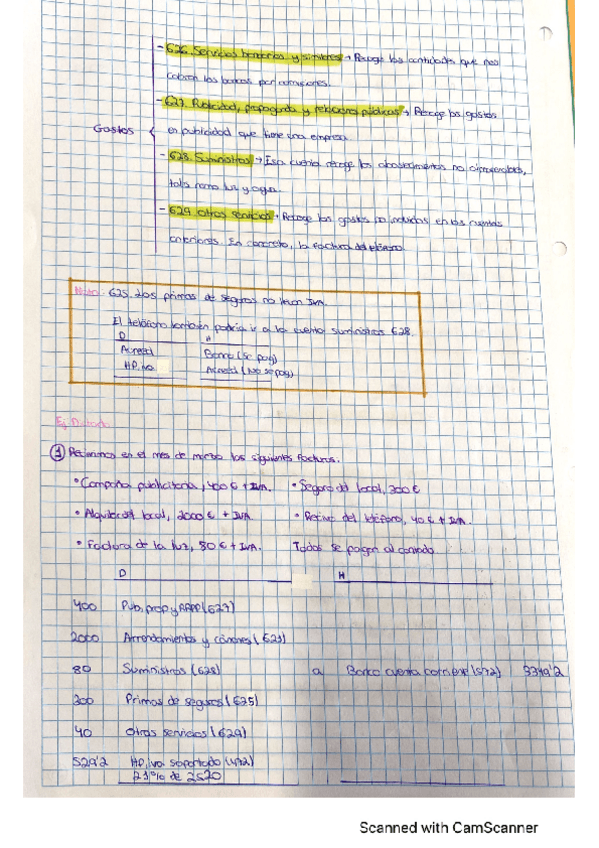 - 626. Servicios bancarios y similares → Recoge las cantidades que nos
cobran los bancos por comisiones.
- 627. Publicidad, propaganda y relaciones públicas → Recoge los gastos
Gastos
en publicidad que tiene una empresa.
- 628. Suministros → Esa cuenta recoge los abastecimientos no almacenables,
tales como luz y agua.
- 629. Otros servicios → Recoge los gastos no incluidos en las cuentas
anteriores. En concreto, la factura del teléfono.
Nota: 625. Las primas de seguros no llevan IVA.
El teléfono también podría ir a la cuenta suministros 628.
D H
Acreed Banco (Se pag)
HP, iva Acreed (No se pag)
Ej. Dictado
1 Recibimos en el mes de marzo las siguientes facturas.
• Campaña publicitaria, 400 € + IVA. • Seguro del local, 300 €
• Alquiler del local, 2000 € + IVA. • Recibo del teléfono, 40 € + IVA.
• Factura de la luz, 80 € + IVA. Todas se pagan al contado.
D H
400 Pub, prop y RRPP (627)
2000 Arrendamientos y cánones (621)
80 Suministros (628) a Banco cuenta corriente (572) 3349'2
300 Primas de seguros (625)
40 Otros servicios (629)
529'2 HP, iva soportado (472)
21% de 2520
Scanned with CamScanner